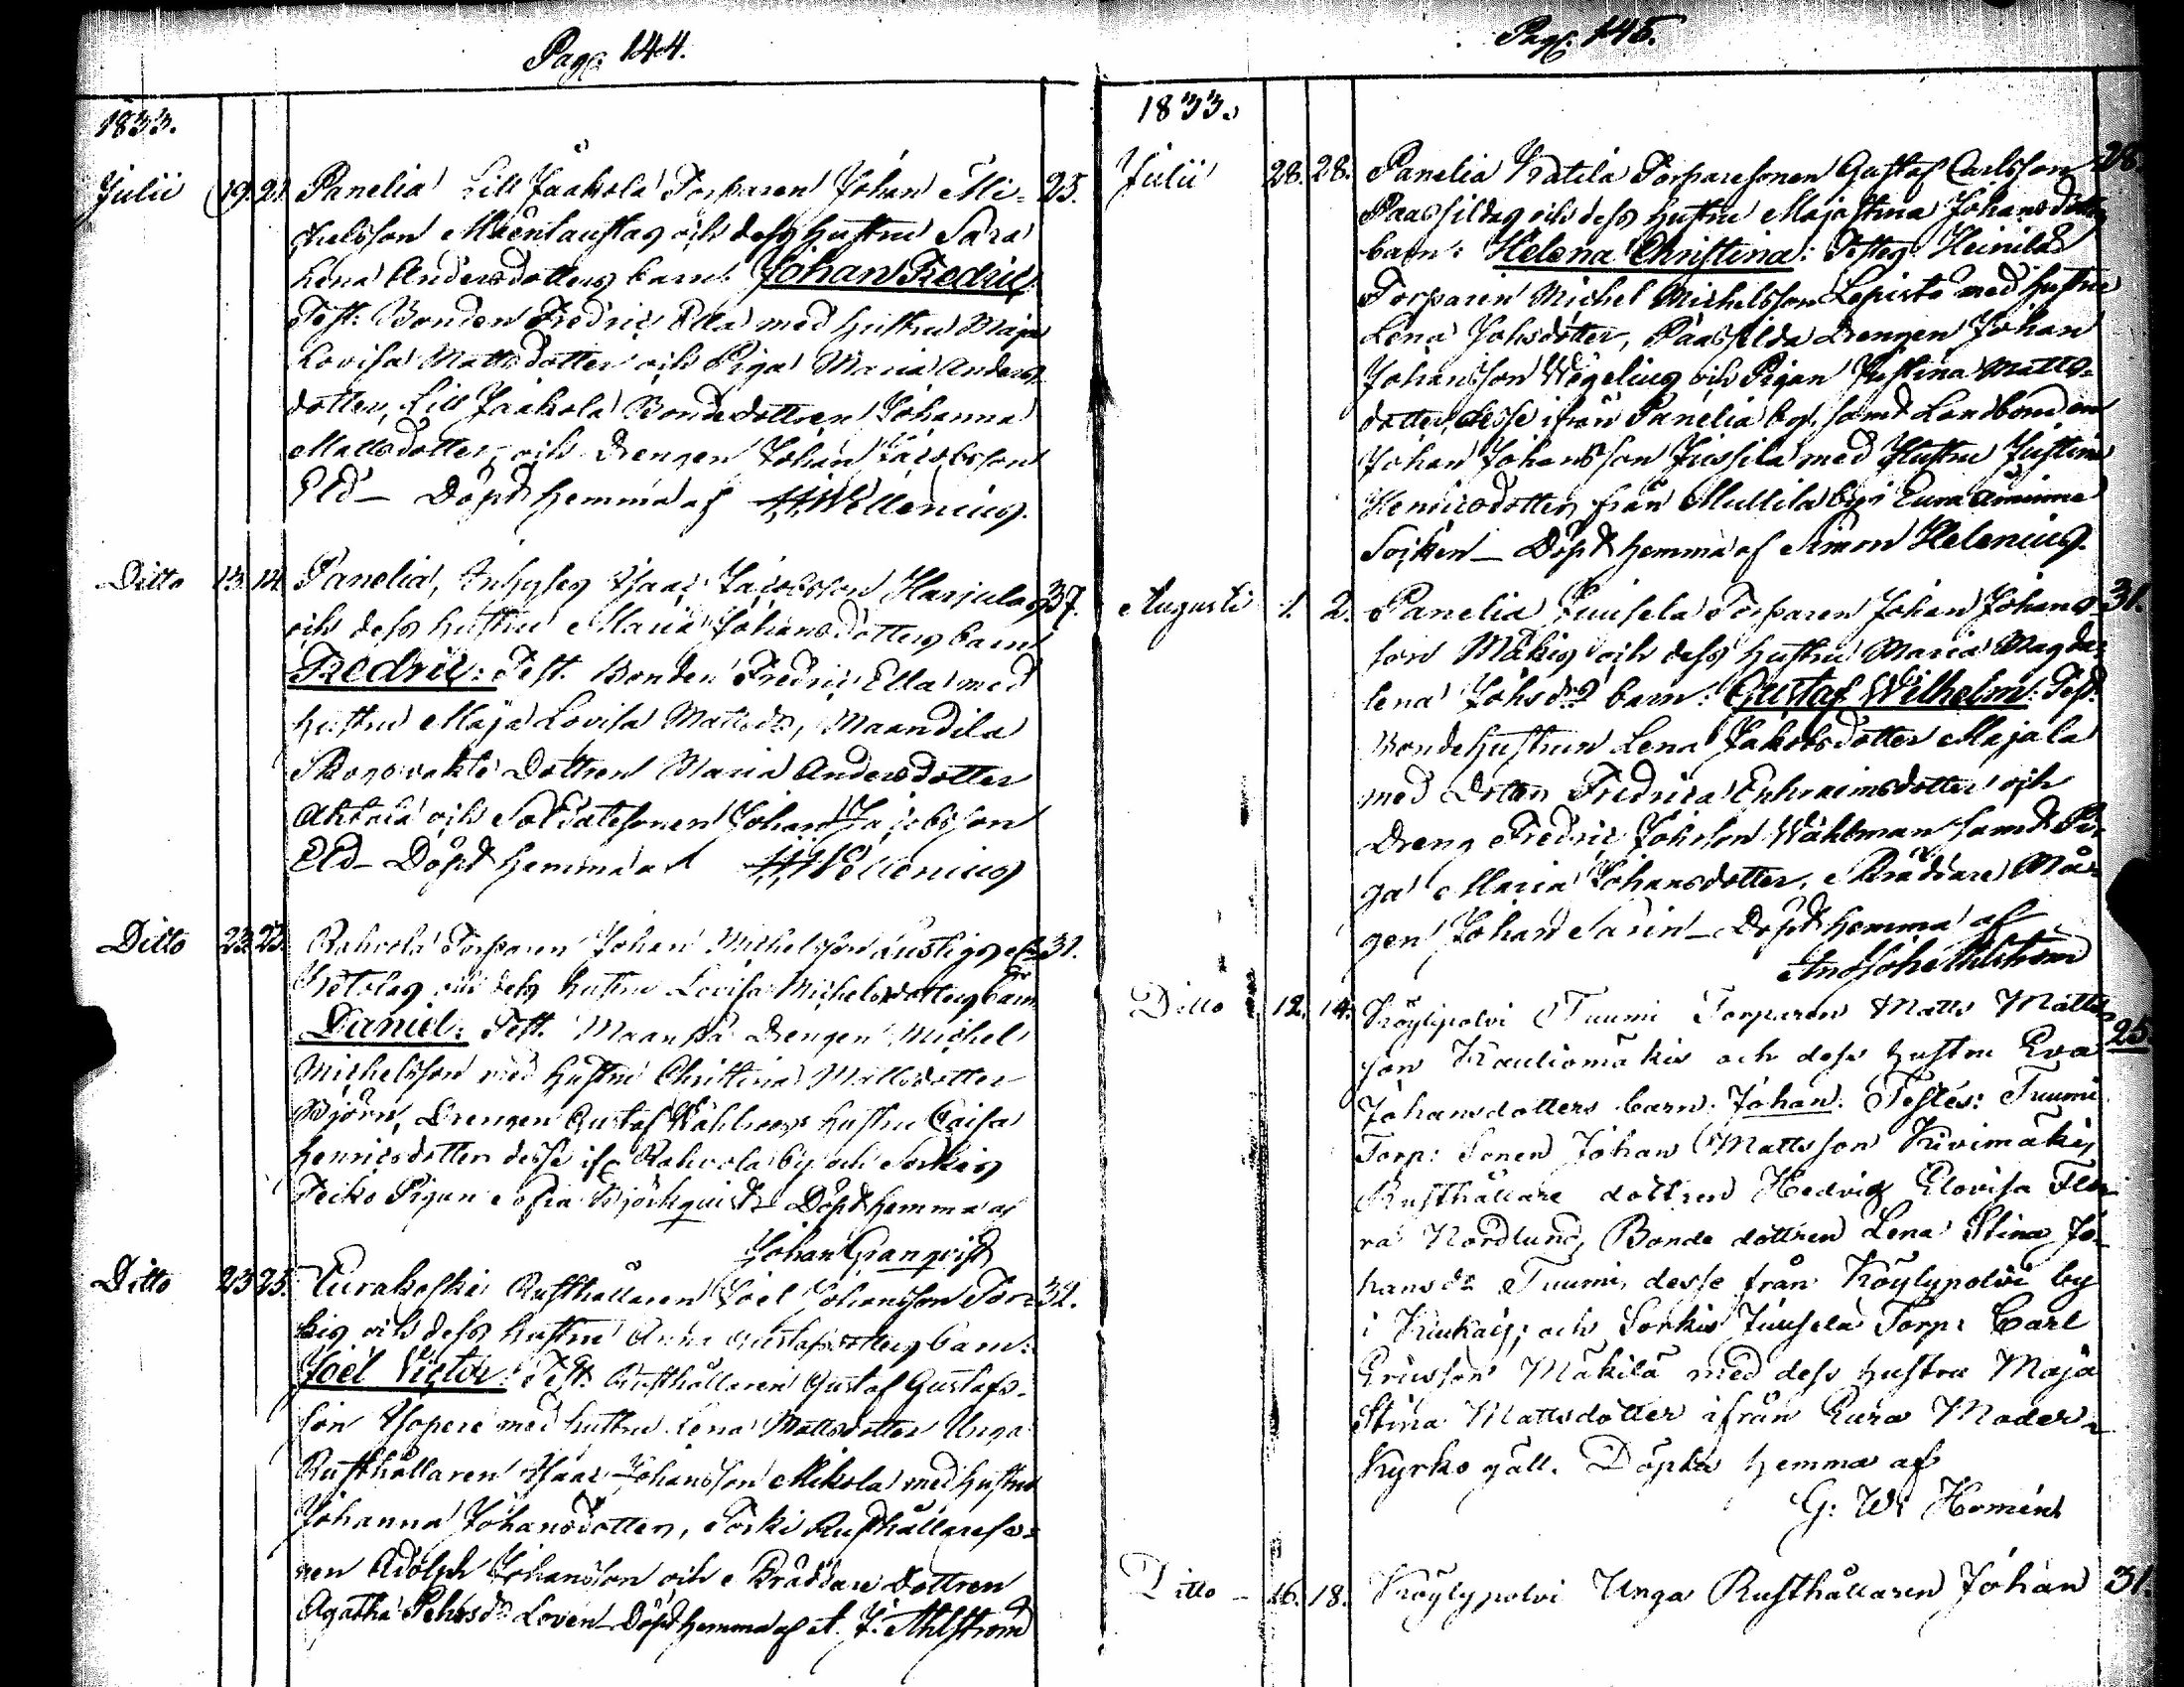 Pag: 144.
1833.
Julii 19. 21. Panelia Lill Jaakola Torparen Johan Mi= 25.
chelsson och dess hustru Sara
Lena Andersdotters barn: Johan Fredric
Test: Bonden Fredric Ella med hustru Maja
Lovisa Mattsdotter och Piga Maria Anders
dotter, Lill Jaakola Bondedottren Johanna
Mattsdotter, och Drengen Johan Jacobsson
Eld – Döpt hemma af Wellenius.
Ditto 13. 14. Panelia, Inhyses Isaac Jacobsson Harjulas 37.
och dess hustru Maria Johansdotters barn
Fredric: Test. Bonden Fredric Ella med
hustru Maja Lovisa Mattsdr, Maandila
Skogvakts Dottren Maria Andersdotter
och Soldatesonen Johan Jacobsson
Eld – Döpt hemma af Wellenius
Ditto 23. 25. Rahvola Torparen Johan Michelsson 31.
och dess hustru Lovisa Michelsdotters barn
Daniel: Test. Maanpä Drengen Michel
Michelsson med hustru Christina Mattsdotter
Björn, Drengen Gustaf hustru Caisa
Henricsdotter desse ifr. Rahvola by och Sorkis
Teiko Pigan Sofia Björkquist – Döpt hemma af
Johan Granqvist
Ditto 23 25. Eurakoski Rusthållaren Joel Johansson Tor= 32.
kis och dess hustru Anna Gustafsdotters barn:
Joel Victor: Test. Rusthållaren Gustaf Gustafs-
son Yopere med hustru Lena Mattsdotter Unga
Rusthållaren Isaac Johansson Mikola med hustru
Johanna Johansdotter, Torki Rusthållareso=
nen Adolph Johansson och Skräddare Dottren
Agatha Pehrsdr Loven – Döpt hemma af A. J. Ahlstrom
Pag: 145.
1833.
Julii 28. 28. Panelia Kratila Torparesonen Gustaf Carlsson 28.
Paassildas och dess hustru Maja Stina Johansdotters
barn: Helena Christina: Testes: Heinilä
Torparen Michel Michelsson Lepistö med hustru
Lena Johsdotter, Paassilda Drengen Johan
Johansson Wegelius och Pigan Justina Matts=
dotter, desse ifrån Panelia by, samt Landbonden
Johan Johansson Jussila med Hustru Justina
Henricsdotter från Mullila by i Euraåminne
Socken – Döpt hemma af Simon Helenius.
Augusti 1. 2. Panelia Juusela Torparen Johan Johans= 31.
son Mäkis och dess hustru Maria Magda=
lena Johsdr barn: Gustaf Wilhelm: Test.
Bondehustrun Lena Jakobsdotter Majala
med Dotter Fredrica Ephraimsdotter och
Dreng Fredric Johsson Wahlman samt Pi=
ga Maria Johansdotter, Skräddare Må=
gen Johan Sarin – Döpt hemma af
And Joh Ahlstrom
Ditto 12. 14. Köylypolvi Tuumi Torparen Matts Matts= 25.
son Kautiomäkis och dess hustru Eva
Johansdotters barn: Johan: Testes: Tuumi
Torp: Sonen Johan Mattsson Kivimäki,
Rusthållare dottren Hedvig Elovisa Flo=
ra Nordlund, Bonde dottren Lena Stina Jo=
hansdr Tuumi, desse från Köylypolvi by
i Kiukais; och Sorkis Juusela Torp: Carl
Ericsson Mäkilä med dess hustru Maja
Stina Mattsdotter ifrån Eura Moder=
Kyrko gäll. Döpta hemma af
G: W: Homén
Ditto – 16. 18. Köylypolvi Unga Rusthållaren Johan 31.